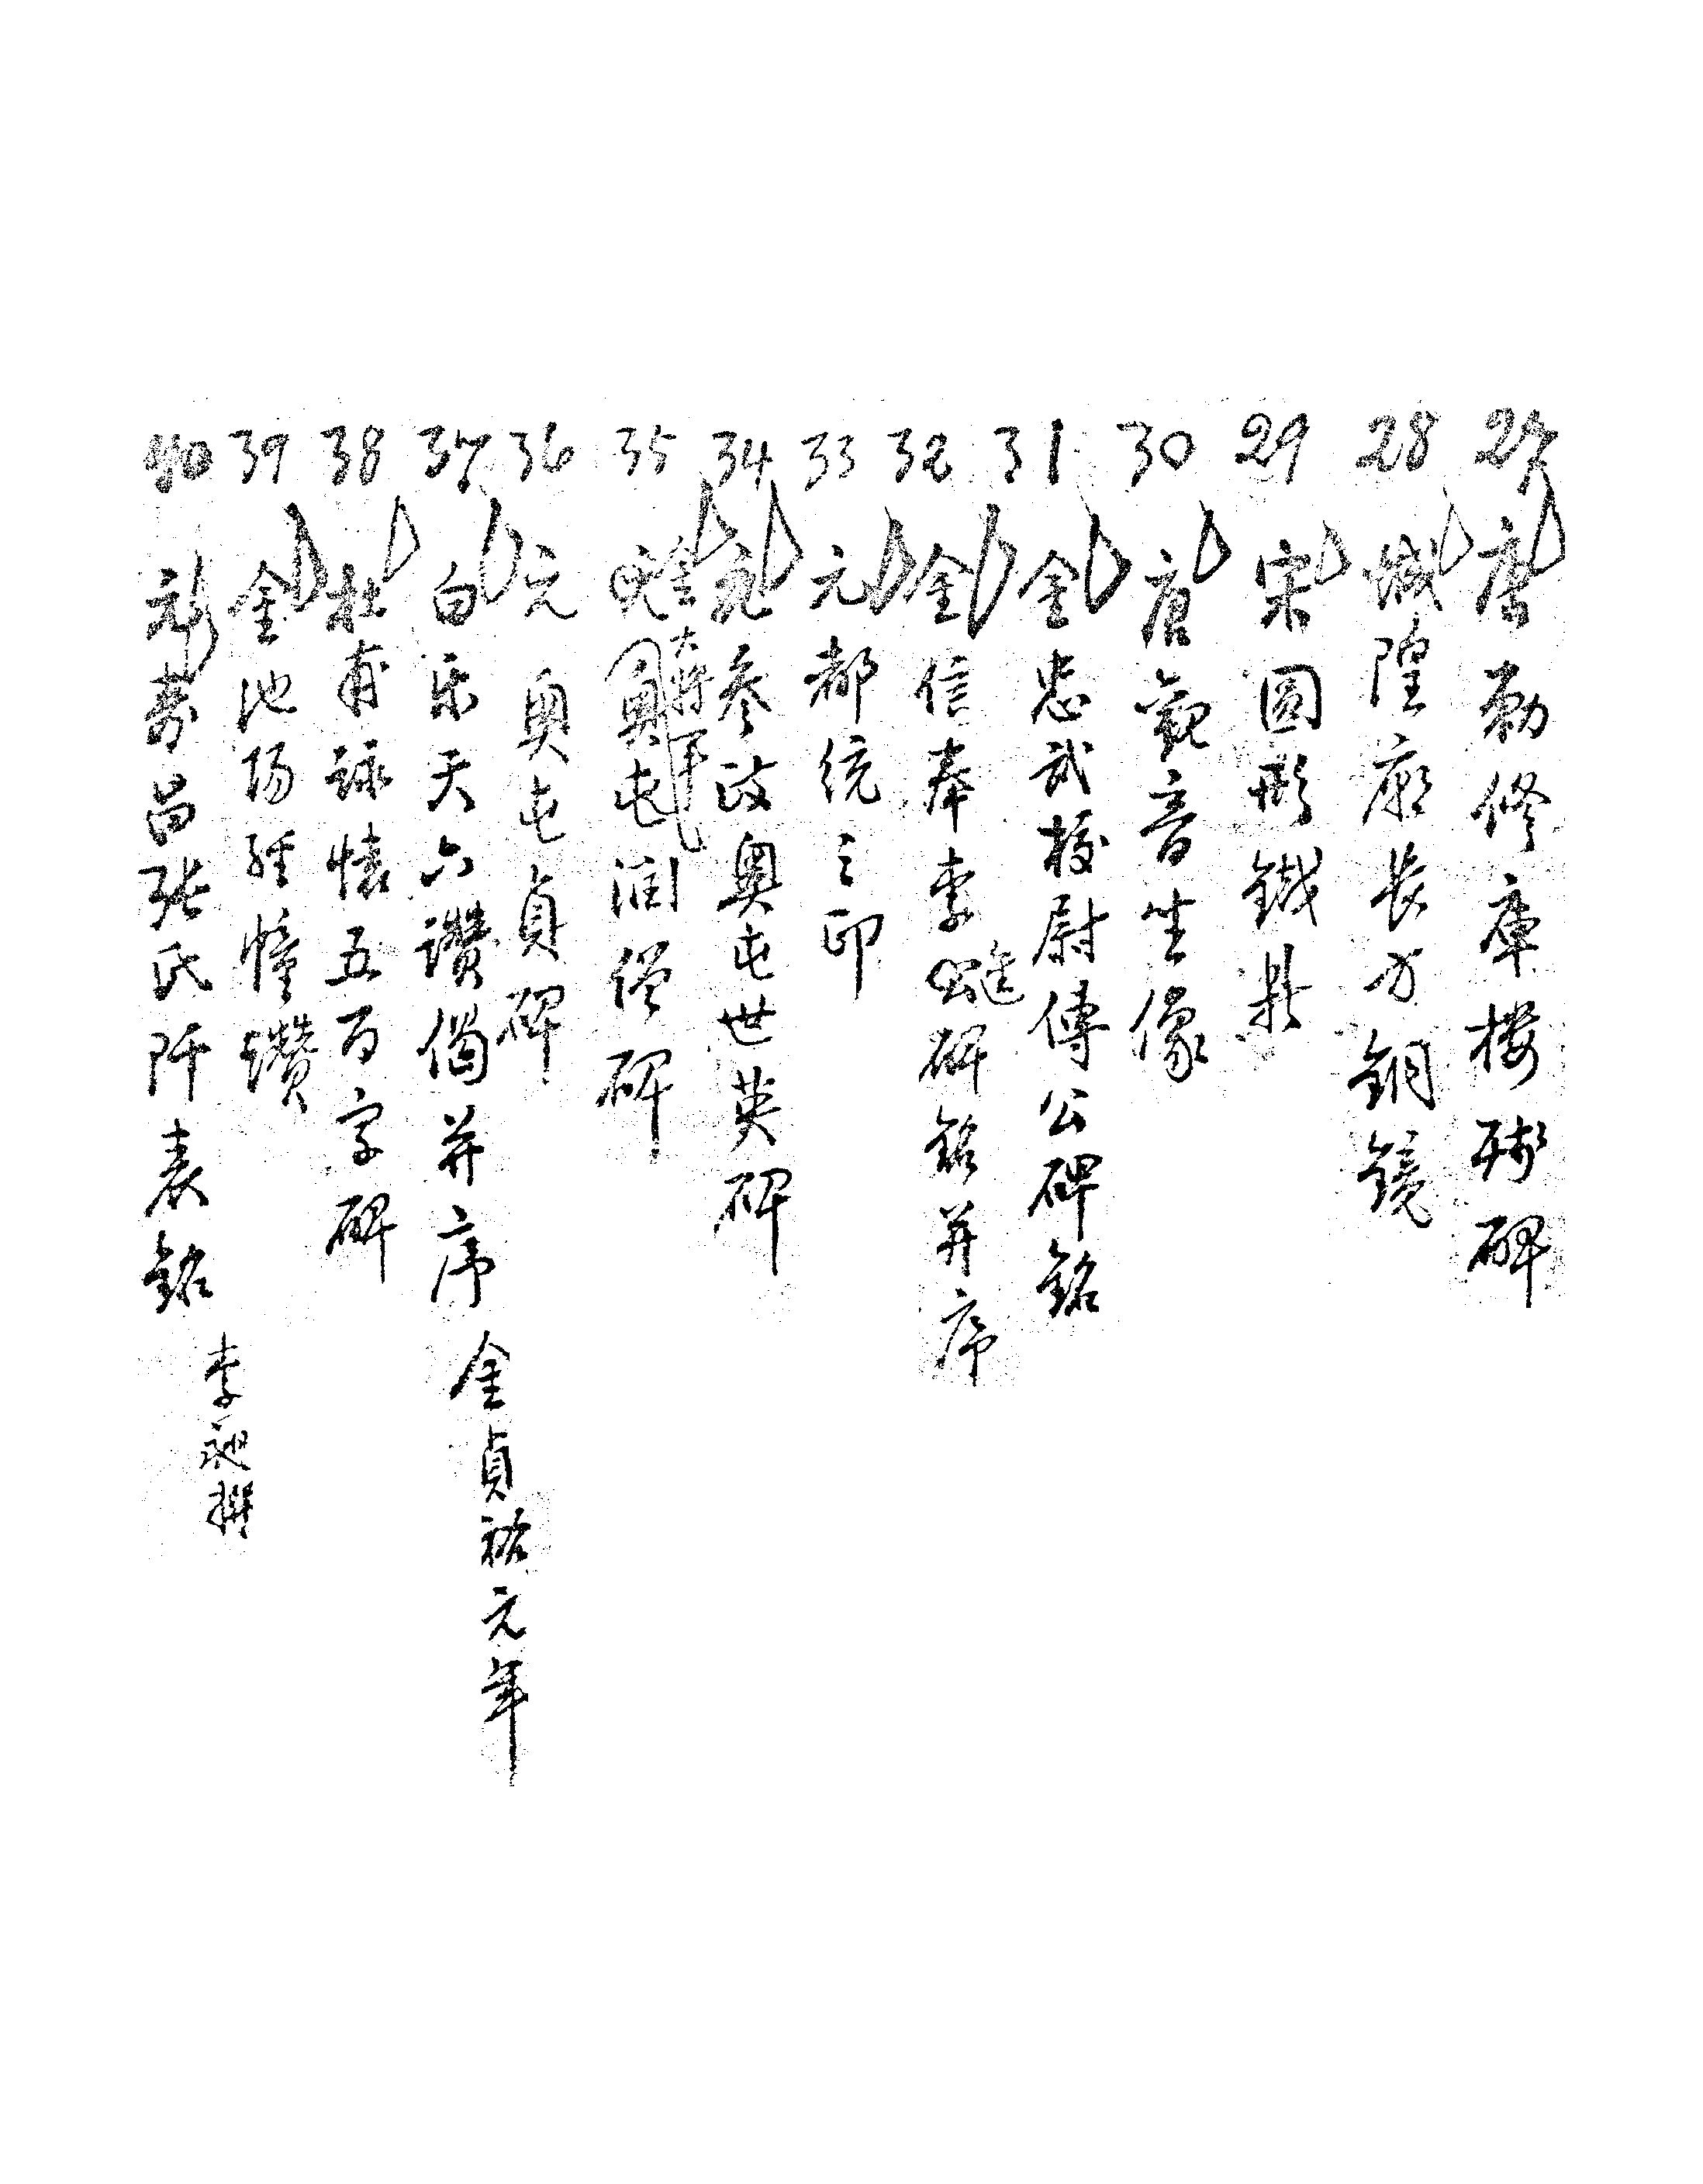 27 唐勅修庫楼残碑
28 城隍廟長方銅鏡
29 宋圆形鐡鼎
30 唐觀音坐像
31 金忠武校尉傅公碑銘
32 金信奉李公碑銘并序
33 元都统之印
34 元参政奥屯世英碑
35 奥屯润僧碑
36 元 奥屯貞碑
37 白乐天六讚偈并序 金貞祐元年
38 杜甫詠懐五百字碑
39 金池阳经幢讚
40 元寿昌张氏阡表銘 李昶撰